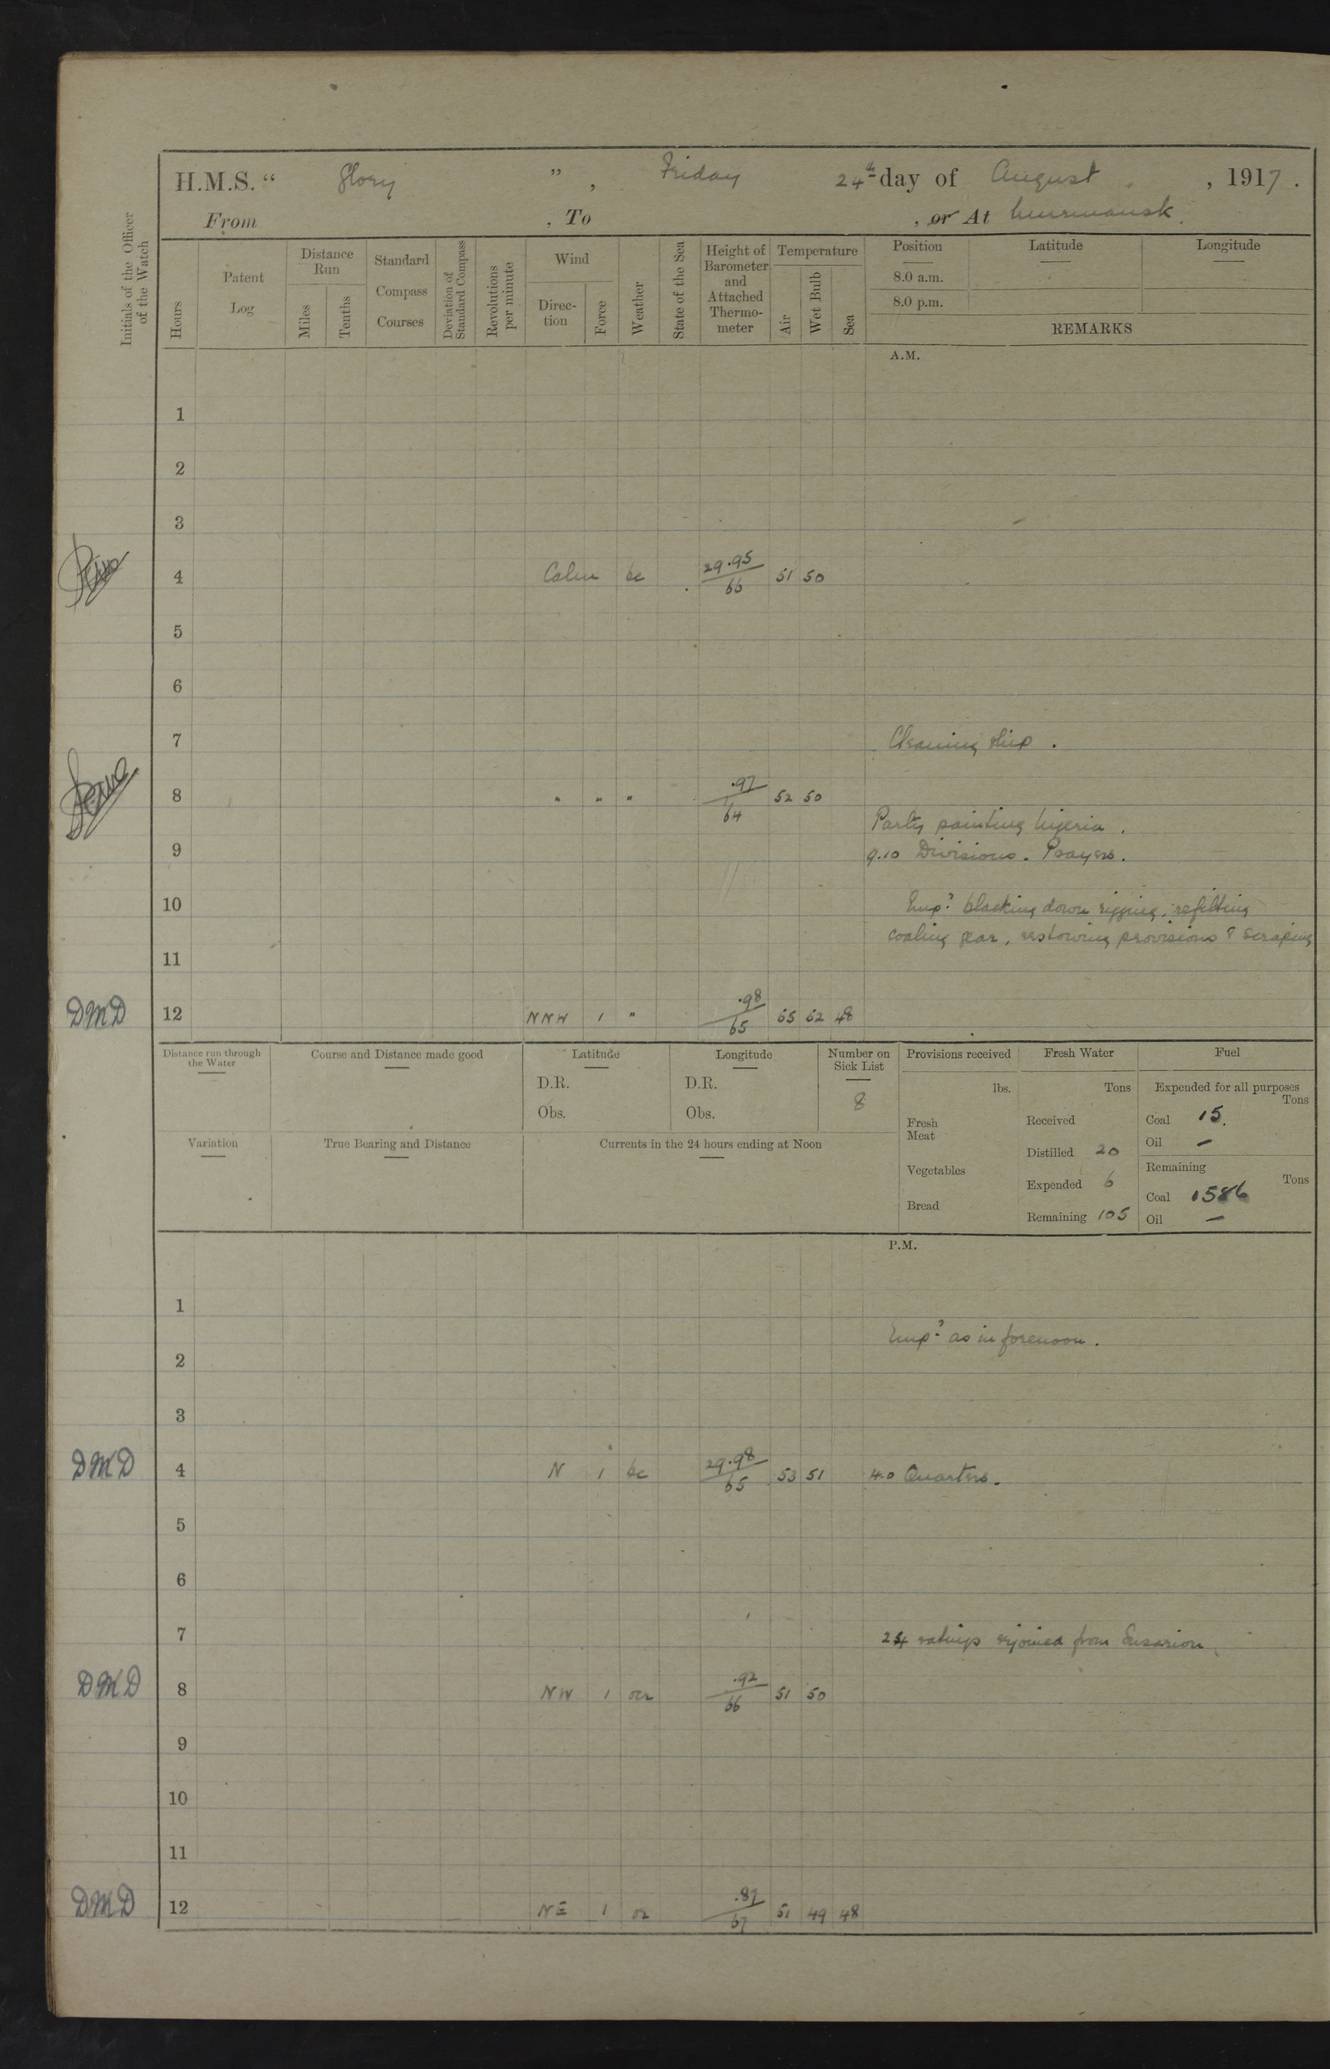 H.M.S. “ Glory ” , Friday 24th day of August , 1917 .
From , To , or At Murmansk.
Initials of the Officer of the Watch
Hours
Patent Log
Distance Run
Miles
Tenths
Standard Compass Courses
Deviation of Standard Compass
Revolutions per minute
Wind
Direc-tion
Force
Weather
State of the Sea
Height of Barometer and Attached Thermo-meter
Temperature
Air
Wet Bulb
Sea
Position
8.0 a.m.
8.0 p.m.
Latitude
Longitude
REMARKS
A.M.
1
2
3
4 Calm bc 29.95/66 51 50
5
6
7 Cleaning ship .
8 " " " .97/64 52 50
Party painting Nigeria .
9
9.10 Divisions. Prayers.
10 Emp? blacking down rigging, refitting
coaling gear, restowing provisions & scraping
11
DMD 12 NNW 1 " .98/65 65 62 48
Distance run through the Water
Course and Distance made good
Latitude
D.R.
Obs.
Longitude
D.R.
Obs.
Number on Sick List
8
Provisions received
lbs.
Fresh Meat
Vegetables
Bread
Fresh Water
Tons
Received
Distilled 20
Expended 6
Remaining 105
Fuel
Expended for all purposes
Tons
Coal 15.
Oil —
Remaining
Tons
Coal 1586
Oil —
Variation
True Bearing and Distance
Currents in the 24 hours ending at Noon
P.M.
1
Emp? as in forenoon .
2
3
DMD 4 N 1 bc 29.98/65 53 51 4.0 Quarters.
5
6
7 24 ratings rejoined from
DMD 8 NW 1 .92/66 51 50
9
10
11
DMD 12 NE 1 .87/67 51 49 48